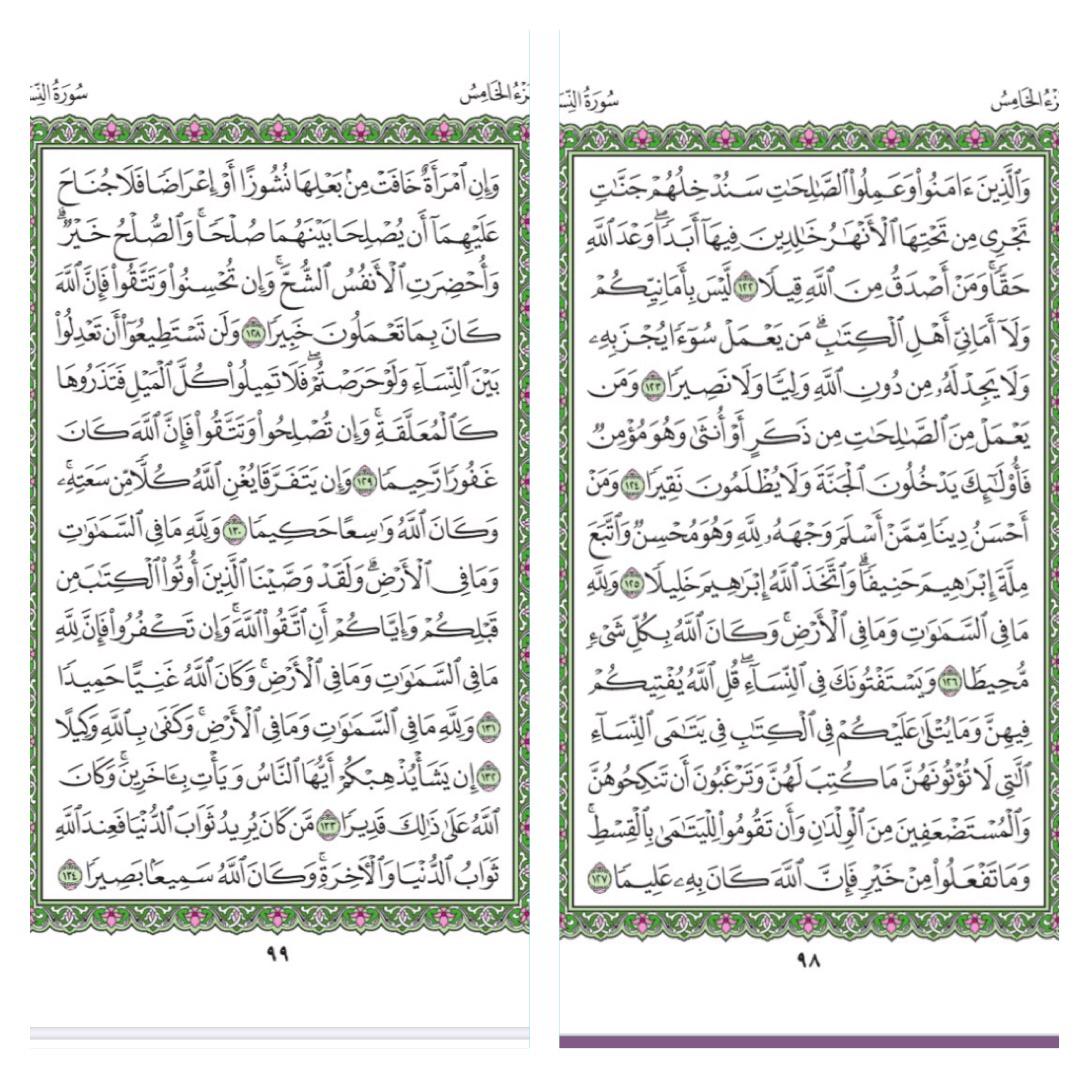 الجزء الخامس
سورة النس
وَالَّذِينَ ءَامَنُوا۟ وَعَمِلُوا۟ الصَّٰلِحَٰتِ سَنُدْخِلُهُمْ جَنَّٰتٍ
تَجْرِى مِن تَحْتِهَا الْأَنْهَٰرُ خَٰلِدِينَ فِيهَآ أَبَدًا ۖ وَعْدَ اللَّهِ
حَقًّا ۚ وَمَنْ أَصْدَقُ مِنَ اللَّهِ قِيلًا ١٢٢ لَّيْسَ بِأَمَانِيِّكُمْ
وَلَآ أَمَانِىِّ أَهْلِ الْكِتَٰبِ ۗ مَن يَعْمَلْ سُوٓءًا يُجْزَ بِهِۦ
وَلَا يَجِدْ لَهُۥ مِن دُونِ اللَّهِ وَلِيًّا وَلَا نَصِيرًا ١٢٣ وَمَن
يَعْمَلْ مِنَ الصَّٰلِحَٰتِ مِن ذَكَرٍ أَوْ أُنثَىٰ وَهُوَ مُؤْمِنٌ
فَأُو۟لَٰٓئِكَ يَدْخُلُونَ الْجَنَّةَ وَلَا يُظْلَمُونَ نَقِيرًا ١٢٤ وَمَنْ
أَحْسَنُ دِينًا مِّمَّنْ أَسْلَمَ وَجْهَهُۥ لِلَّهِ وَهُوَ مُحْسِنٌ وَاتَّبَعَ
مِلَّةَ إِبْرَٰهِيمَ حَنِيفًا ۗ وَاتَّخَذَ اللَّهُ إِبْرَٰهِيمَ خَلِيلًا ١٢٥ وَلِلَّهِ
مَا فِى السَّمَٰوَٰتِ وَمَا فِى الْأَرْضِ ۚ وَكَانَ اللَّهُ بِكُلِّ شَىْءٍ
مُّحِيطًا ١٢٦ وَيَسْتَفْتُونَكَ فِى النِّسَآءِ ۖ قُلِ اللَّهُ يُفْتِيكُمْ
فِيهِنَّ وَمَا يُتْلَىٰ عَلَيْكُمْ فِى الْكِتَٰبِ فِى يَتَٰمَى النِّسَآءِ
الَّٰتِى لَا تُؤْتُونَهُنَّ مَا كُتِبَ لَهُنَّ وَتَرْغَبُونَ أَن تَنكِحُوهُنَّ
وَالْمُسْتَضْعَفِينَ مِنَ الْوِلْدَٰنِ وَأَن تَقُومُوا۟ لِلْيَتَٰمَىٰ بِالْقِسْطِ ۚ
وَمَا تَفْعَلُوا۟ مِنْ خَيْرٍ فَإِنَّ اللَّهَ كَانَ بِهِۦ عَلِيمًا ١٢٧
٩٨
الجزء الخامس
سورة النس
وَإِنِ امْرَأَةٌ خَافَتْ مِنۢ بَعْلِهَا نُشُوزًا أَوْ إِعْرَاضًا فَلَا جُنَاحَ
عَلَيْهِمَآ أَن يُصْلِحَا بَيْنَهُمَا صُلْحًا ۚ وَالصُّلْحُ خَيْرٌ ۗ
وَأُحْضِرَتِ الْأَنفُسُ الشُّحَّ ۚ وَإِن تُحْسِنُوا۟ وَتَتَّقُوا۟ فَإِنَّ اللَّهَ
كَانَ بِمَا تَعْمَلُونَ خَبِيرًا ١٢٨ وَلَن تَسْتَطِيعُوٓا۟ أَن تَعْدِلُوا۟
بَيْنَ النِّسَآءِ وَلَوْ حَرَصْتُمْ ۖ فَلَا تَمِيلُوا۟ كُلَّ الْمَيْلِ فَتَذَرُوهَا
كَالْمُعَلَّقَةِ ۚ وَإِن تُصْلِحُوا۟ وَتَتَّقُوا۟ فَإِنَّ اللَّهَ كَانَ
غَفُورًا رَّحِيمًا ١٢٩ وَإِن يَتَفَرَّقَا يُغْنِ اللَّهُ كُلًّا مِّن سَعَتِهِۦ ۚ
وَكَانَ اللَّهُ وَٰسِعًا حَكِيمًا ١٣٠ وَلِلَّهِ مَا فِى السَّمَٰوَٰتِ
وَمَا فِى الْأَرْضِ ۗ وَلَقَدْ وَصَّيْنَا الَّذِينَ أُوتُوا۟ الْكِتَٰبَ مِن
قَبْلِكُمْ وَإِيَّاكُمْ أَنِ اتَّقُوا۟ اللَّهَ ۚ وَإِن تَكْفُرُوا۟ فَإِنَّ لِلَّهِ
مَا فِى السَّمَٰوَٰتِ وَمَا فِى الْأَرْضِ ۚ وَكَانَ اللَّهُ غَنِيًّا حَمِيدًا
١٣١ وَلِلَّهِ مَا فِى السَّمَٰوَٰتِ وَمَا فِى الْأَرْضِ ۚ وَكَفَىٰ بِاللَّهِ وَكِيلًا
١٣٢ إِن يَشَأْ يُذْهِبْكُمْ أَيُّهَا النَّاسُ وَيَأْتِ بِـَٔاخَرِينَ ۚ وَكَانَ
اللَّهُ عَلَىٰ ذَٰلِكَ قَدِيرًا ١٣٣ مَّن كَانَ يُرِيدُ ثَوَابَ الدُّنْيَا فَعِندَ اللَّهِ
ثَوَابُ الدُّنْيَا وَالْءَاخِرَةِ ۚ وَكَانَ اللَّهُ سَمِيعًۢا بَصِيرًا ١٣٤
٩٩